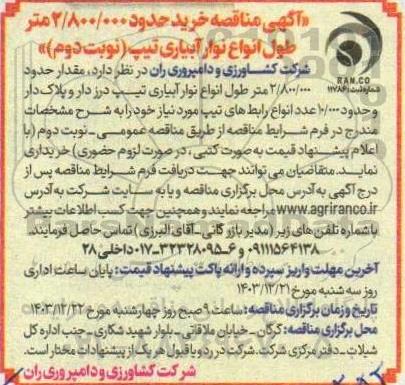 «آگهی مناقصه خرید حدود ۲/۸۰۰/۰۰۰ متر
طول انواع نوار آبیاری تیپ (نوبت دوم)»
RAN.CO
شماره ثبت: ۱۱۷۸۶
شرکت کشاورزی و دامپروری ران در نظر دارد، مقدار حدود
۲/۸۰۰/۰۰۰ متر طول انواع نوار آبیاری تیپ درز دار و پلاک دار
و حدود ۱۰/۰۰۰ عدد انواع رابط های تیپ مورد نیاز خود را به شرح مشخصات
مندرج در فرم شرایط مناقصه از طریق مناقصه عمومی - نوبت دوم (با
اعلام پیشنهاد قیمت به صورت کتبی، در صورت لزوم حضوری) خریداری
نماید. متقاضیان می توانند جهت دریافت فرم شرایط مناقصه پس از
درج آگهی به آدرس محل برگزاری مناقصه و یا به سایت شرکت به آدرس
www.agriranco.ir مراجعه نمایند و همچنین جهت کسب اطلاعات بیشتر
با شماره تلفن های زیر (مدیر بازرگانی - آقای البرزی) تماس حاصل فرمایند.
۰۹۱۱۱۵۶۴۱۳۸ و ۶-۳۲۳۲۸۰۹۵-۰۱۷ داخلی ۲۸
آخرین مهلت واریز سپرده و ارائه پاکت پیشنهاد قیمت: پایان ساعت اداری
روز سه شنبه مورخ ۱۴۰۳/۱۲/۲۱
تاریخ و زمان برگزاری مناقصه: ساعت ۹ صبح روز چهارشنبه مورخ ۱۴۰۳/۱۲/۲۲
محل برگزاری مناقصه: گرگان - خیابان ملاقاتی - بلوار شهید شکاری - جنب اداره کل
شیلات - دفتر مرکزی شرکت. شرکت در رد و یا قبول هر یک از پیشنهادات مختار است.
شرکت کشاورزی و دامپروری ران